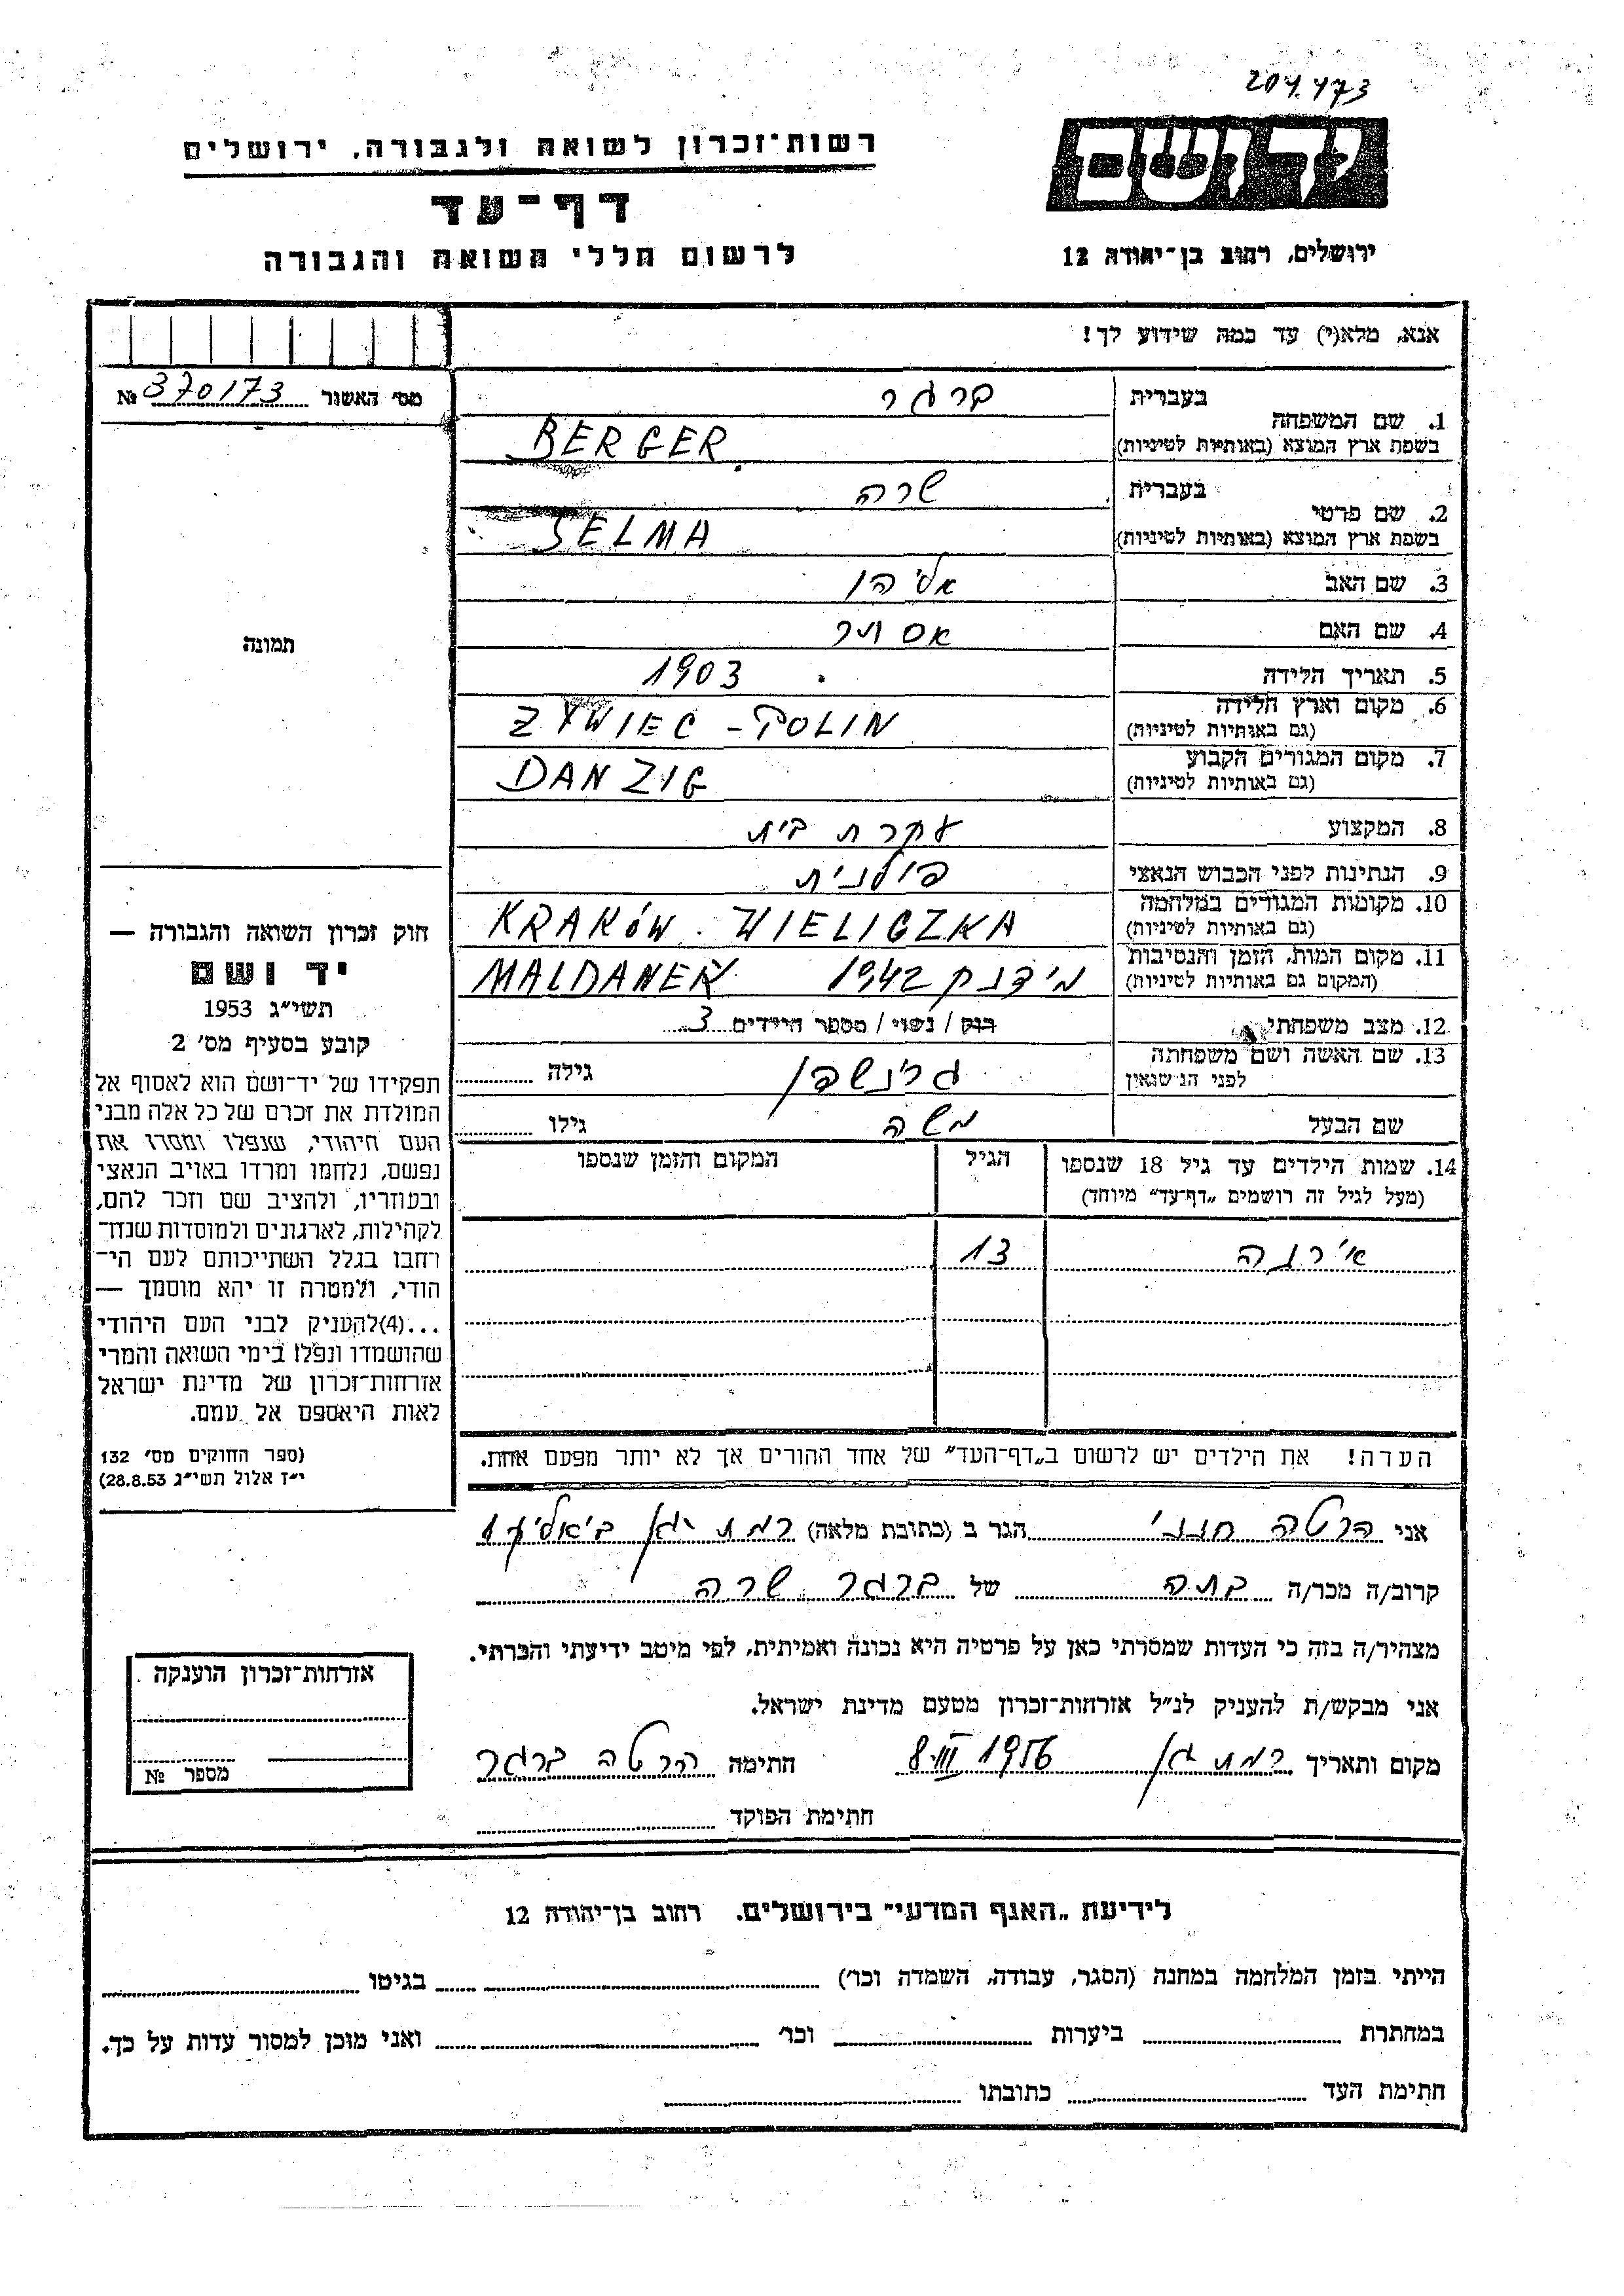 204.473
יד ושם
רשות־זכרון לשואה ולגבורה, ירושלים
דף־עד
לרשום חללי השואה והגבורה
ירושלים, רחוב בן־יהודה 12
אנא, מלא(י) עד כמה שידוע לך!
מס׳ האשור 370173 №
1. שם המשפחה בעברית ברגר
בשפת ארץ המוצא (באותיות לטיניות) BERGER
2. שם פרטי בעברית שרה
בשפת ארץ המוצא (באותיות לטיניות) SELMA
3. שם האב אליהו
4. שם האם אסתר
5. תאריך הלידה 1903
6. מקום וארץ הלידה
(גם באותיות לטיניות) ZYWIEC - POLIN
7. מקום המגורים הקבוע
(גם באותיות לטיניות) DANZIG
8. המקצוע עקרת בית
9. הנתינות לפני הכבוש הנאצי פולנית
10. מקומות המגורים במלחמה
(גם באותיות לטיניות) KRAKÓW. WIELICZKA
11. מקום המות, הזמן והנסיבות
(המקום גם באותיות לטיניות) מידנק 1942 MALDANEK
12. מצב משפחתי רוק / נשוי / מספר הילדים 3
13. שם האשה ושם משפחתה
לפני הנישואין גרינשפן גילה
שם הבעל משה גילו
14. שמות הילדים עד גיל 18 שנספו הגיל המקום והזמן שנספו
(מעל לגיל זה רושמים „דף־עד” מיוחד)
אירנה 13
הערה! את הילדים יש לרשום ב„דף־העד” של אחד ההורים אך לא יותר מפעם אחת.
תמונה
חוק זכרון השואה והגבורה —
יד ושם
תשי״ג 1953
קובע בסעיף מס׳ 2
תפקידו של יד־ושם הוא לאסוף אל
המולדת את זכרם של כל אלה מבני
העם היהודי, שנפלו ומסרו את
נפשם, נלחמו ומרדו באויב הנאצי
ובעוזריו, ולהציב שם וזכר להם,
לקהילות, לארגונים ולמוסדות שנח־
רבו בגלל השתייכותם לעם הי־
הודי, ולמטרה זו יהא מוסמך —
...(4) להעניק לבני העם היהודי
שהושמדו ונפלו בימי השואה והמרי
אזרחות־זכרון של מדינת ישראל
לאות היאספם אל עמם.
(ספר החוקים מס׳ 132
י״ז אלול תשי״ג 28.8.53)
אני הרטה חנני הגר ב (כתובת מלאה) רמת גן ביאליק 1
קרוב/ה מכר/ה בתה של ברגר שרה
מצהיר/ה בזה כי העדות שמסרתי כאן על פרטיה היא נכונה ואמיתית, לפי מיטב ידיעתי והכרתי.
אני מבקש/ת להעניק לנ״ל אזרחות־זכרון מטעם מדינת ישראל.
מקום ותאריך רמת גן 8.III 1956 חתימה הרטה ברגר
חתימת הפוקד
אזרחות־זכרון הוענקה
מספר №
לידיעת „האגף המדעי” בירושלים. רחוב בן־יהודה 12
הייתי בזמן המלחמה במחנה (הסגר, עבודה, השמדה וכו׳) בגיטו
במחתרת ביערות וכו׳ ואני מוכן למסור עדות על כך.
חתימת העד כתובתו